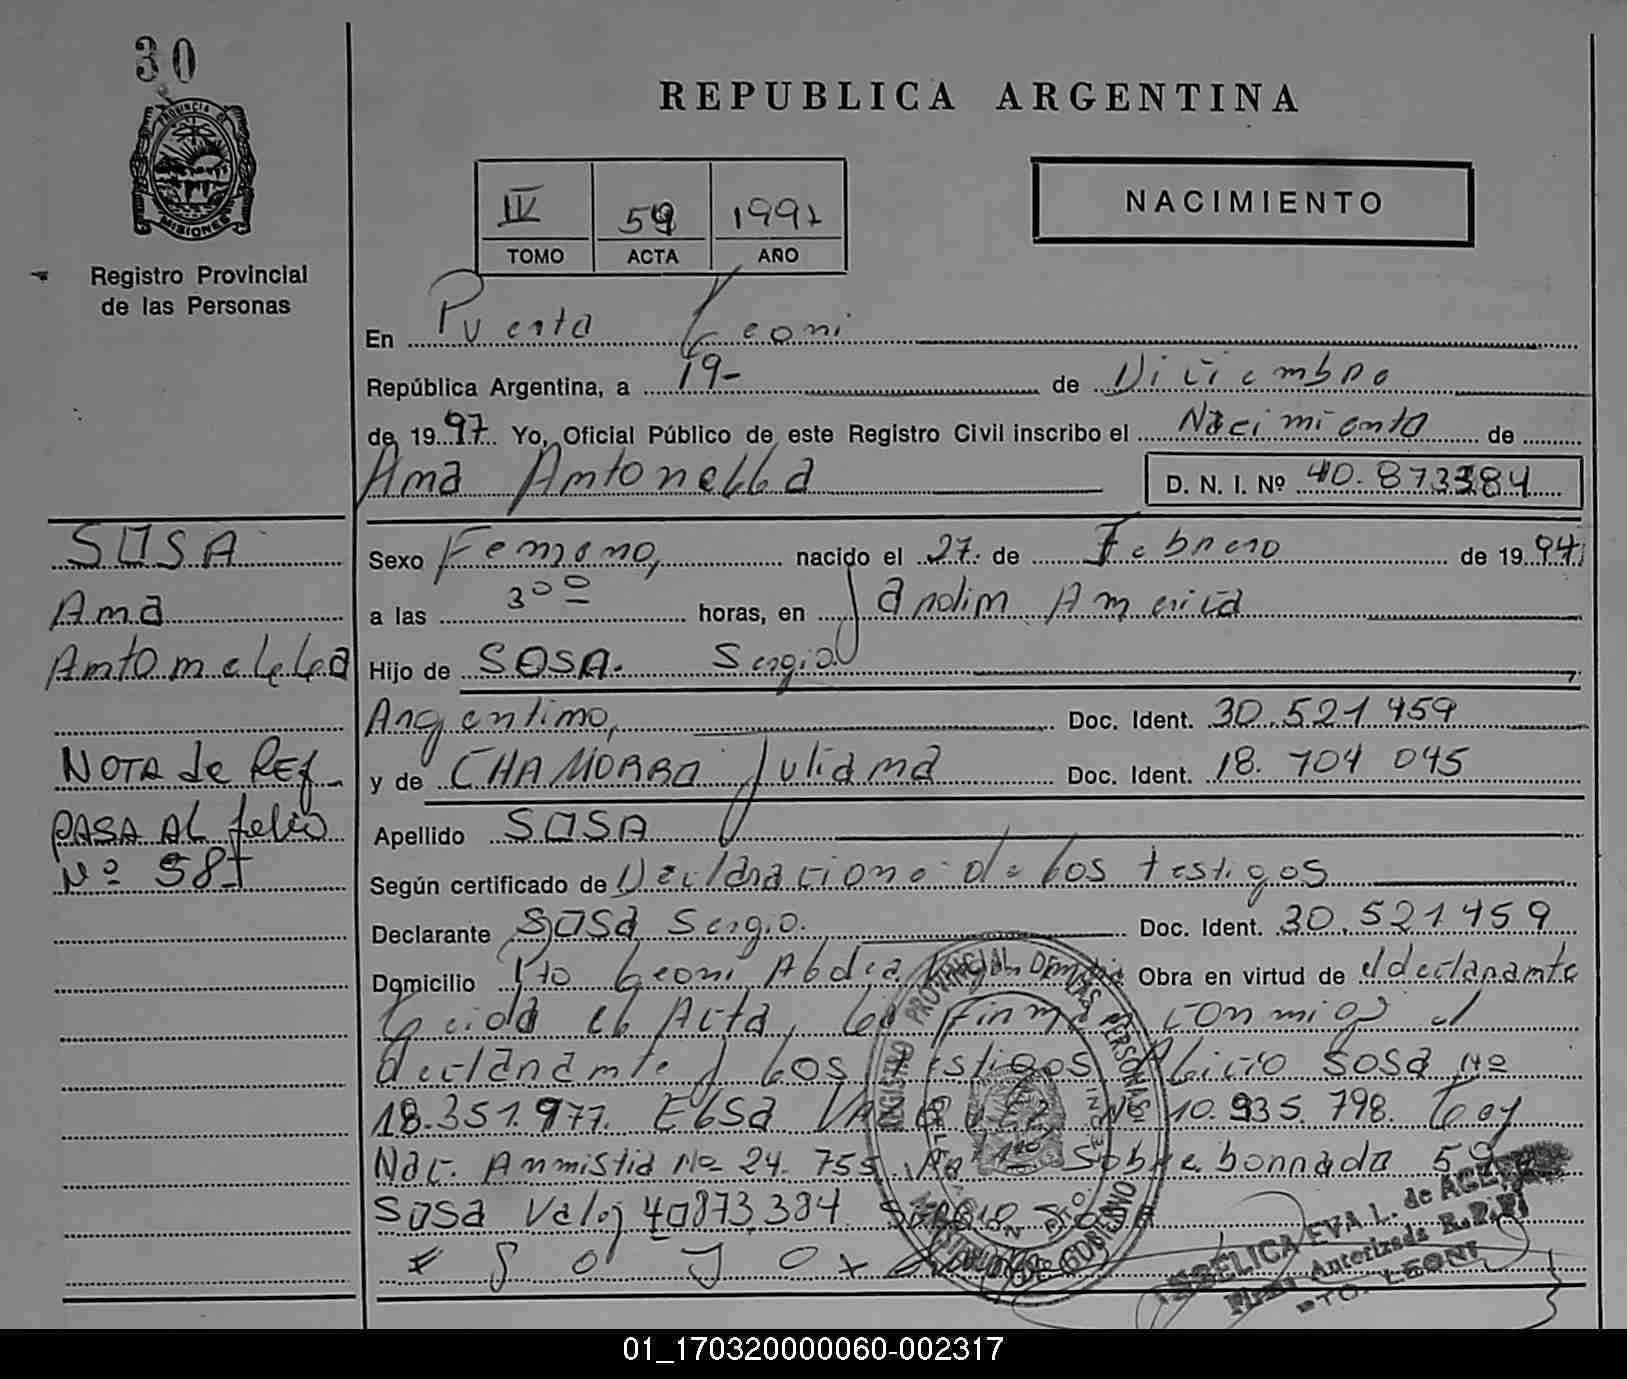 30
PROVINCIA DE
MISIONES
Registro Provincial
de las Personas
REPUBLICA ARGENTINA
IV 59 1997
TOMO ACTA AÑO
NACIMIENTO
En Puerto Leoni
República Argentina, a 19- de Diciembre
de 1997. Yo, Oficial Público de este Registro Civil inscribo el Nacimiento de
Ana Antonella D. N. I. Nº 40.873384
SOSA
Ana
Antonella
Sexo Femenino, nacido el 27. de Febrero de 1994
a las 3⁰⁰ horas, en Jardin America
Hijo de SOSA. Sergio,
Argentino, Doc. Ident. 30.521 459
y de CHAMORRO Juliana Doc. Ident. 18. 704 045
NOTA de REf
PASA AL folio
Nº 587
Apellido SOSA
Según certificado de Declaracione de los testigos
Declarante SOSA Sergio. Doc. Ident. 30.521459
Domicilio Pto Leoni Obra en virtud de el declarante
Leida el Acta, la firma conmigo el
declarante y los testigos Alicio Sosa Nº
18.351.977. Elsa Nº 10.935.798. Ley
Nac. Amnistia Nº 24.755. Sobre borrado 59
Sosa Vale 40873384
ANGELICA EVA L. de
Firma Autorizada R.P.P.
PTO. LEONI
01_170320000060-002317